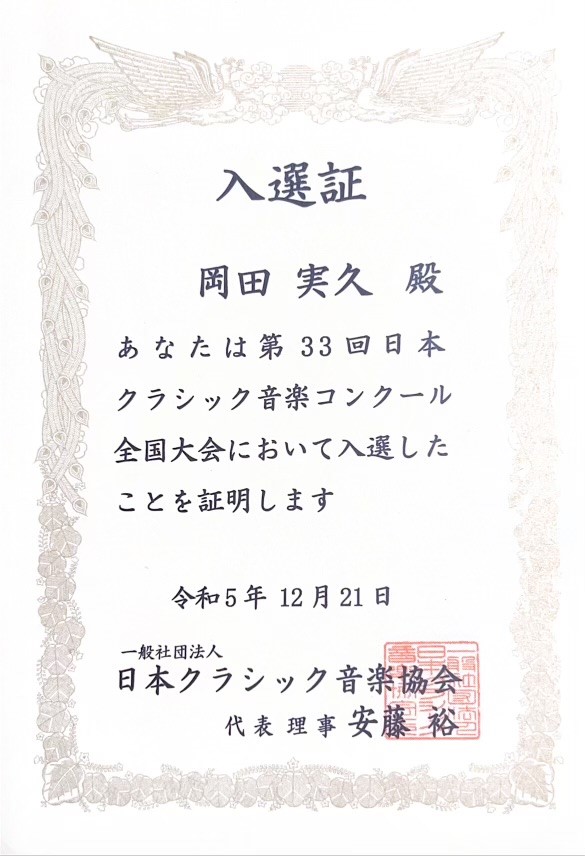 入選証
岡田 実久 殿
あなたは第33回日本
クラシック音楽コンクール
全国大会において入選した
ことを証明します
令和5年 12月21日
一般社団法人
日本クラシック音楽協会
代表理事 安藤 裕